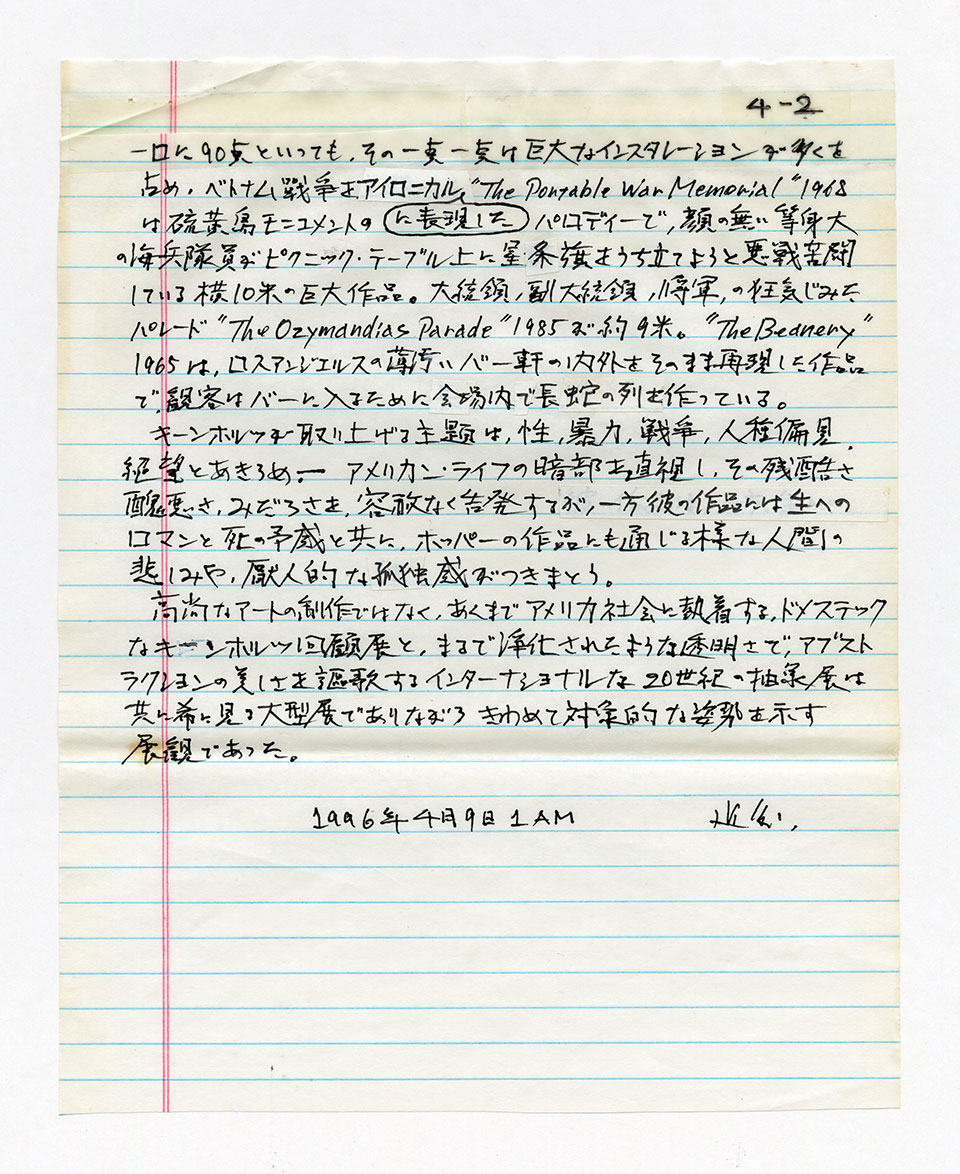 4-2
一口に90点といっても、その一点一点は巨大なインスタレーションが多くを
占め、ベトナム戦争をアイロニカル "The Portable War Memorial" 1968
は硫黄島モニュメントの に表現した パロディーで、顔の無い等身大
の海兵隊員がピクニック・テーブル上に星条旗をうち立てようと悪戦苦闘
している横10米の巨大作品。大統領,副大統領,将軍,の狂気じみた
パレード "The Ozymandias Parade" 1985が約9米。"The Beanery"
1965は,ロスアンジェルスの薄汚いバー一軒の内外をそのまま再現した作品
で,観客はバーに入るために会場内で長蛇の列を作っている。
キーンホルツが取り上げる主題は,性,暴力,戦争,人種偏見,
絶望とあきらめ ー アメリカン・ライフの暗部を直視し,その残酷さ
醜悪さ,みだらさを,容赦なく告発するが,一方彼の作品には生への
ロマンと死の予感と共に,ホッパーの作品にも通じる様な人間の
悲しみや,厭人的な孤独感がつきまとう。
高尚なアートの制作ではなく,あくまでアメリカ社会に執着する,ドメステック
なキーンホルツ回顧展と,まるで浄化されたような透明さで,アブスト
ラクションの美しさを謳歌するインターナショナルな20世紀の抽象展は
共に希に見る大型展でありながら きわめて対象的な姿勢を示す
展観であった。
1996年4月9日 1 AM